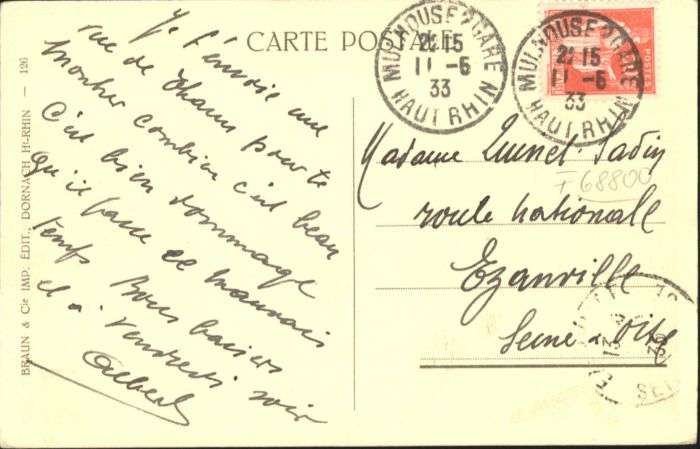 CARTE POSTALE
Je t'envoie une
rue de Thann pour te
montrer combien c'est beau
c'est bien dommage
qu'il fasse ce mauvais
temps Bons baisers
et à Vendredi soir
Albert
BRAUN & Cie IMP. ÉDIT., DORNACH Ht-RHIN — 126
MULHOUSE GARE
21 15
11 - 6
33
HAUT RHIN
MULHOUSE GARE
21 15
11 - 6
33
HAUT RHIN
POSTES
Madame
F 68800
route Nationale
Ezanville
Seine & Oise